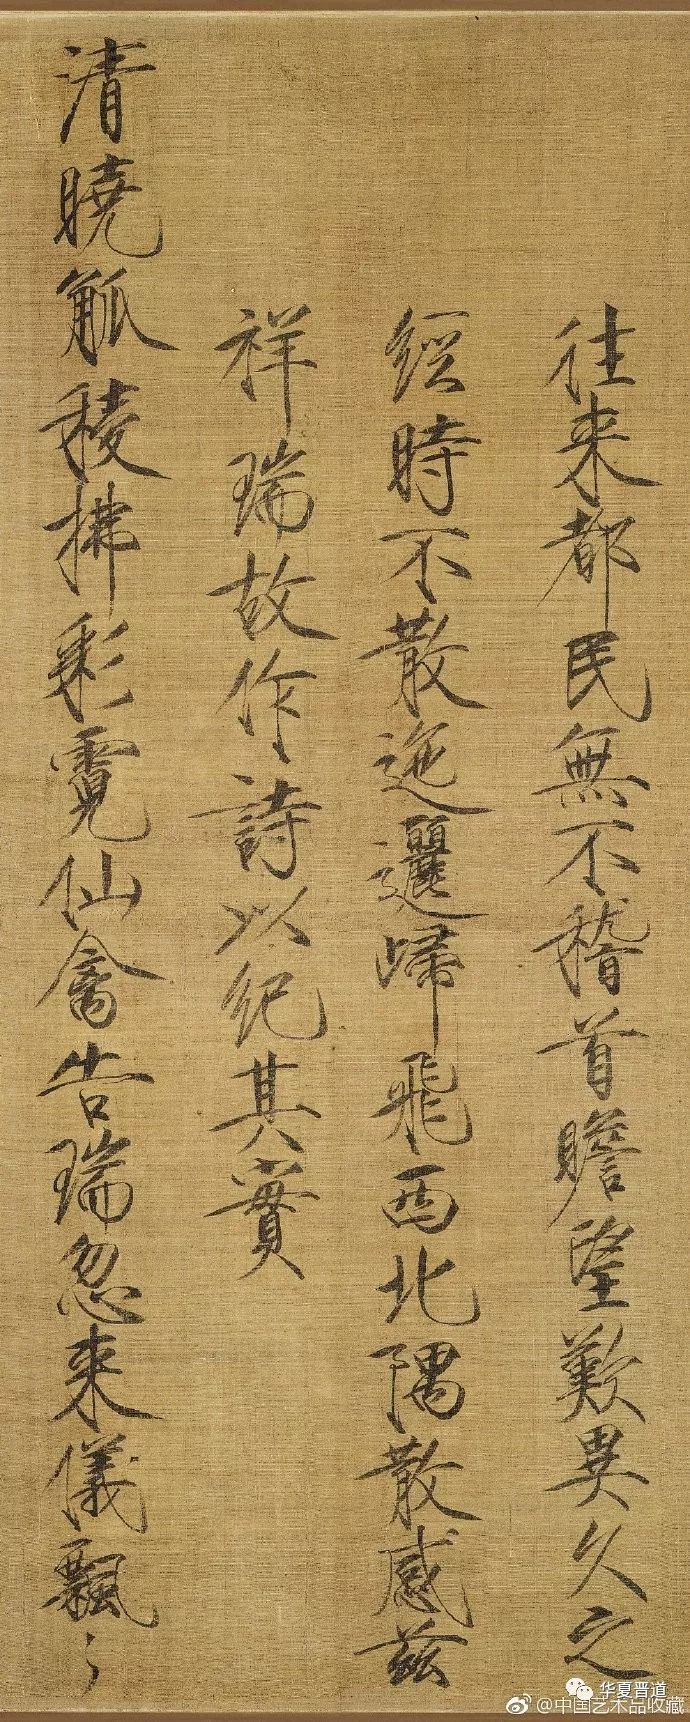 往来都民無不稽首瞻望歎異久之
經時不散迤邐歸飛西北隅散感茲
祥瑞故作詩以紀其實
清曉觚稜拂彩霓仙禽告瑞忽来儀飄〻
华夏晋道
@中国艺术品收藏